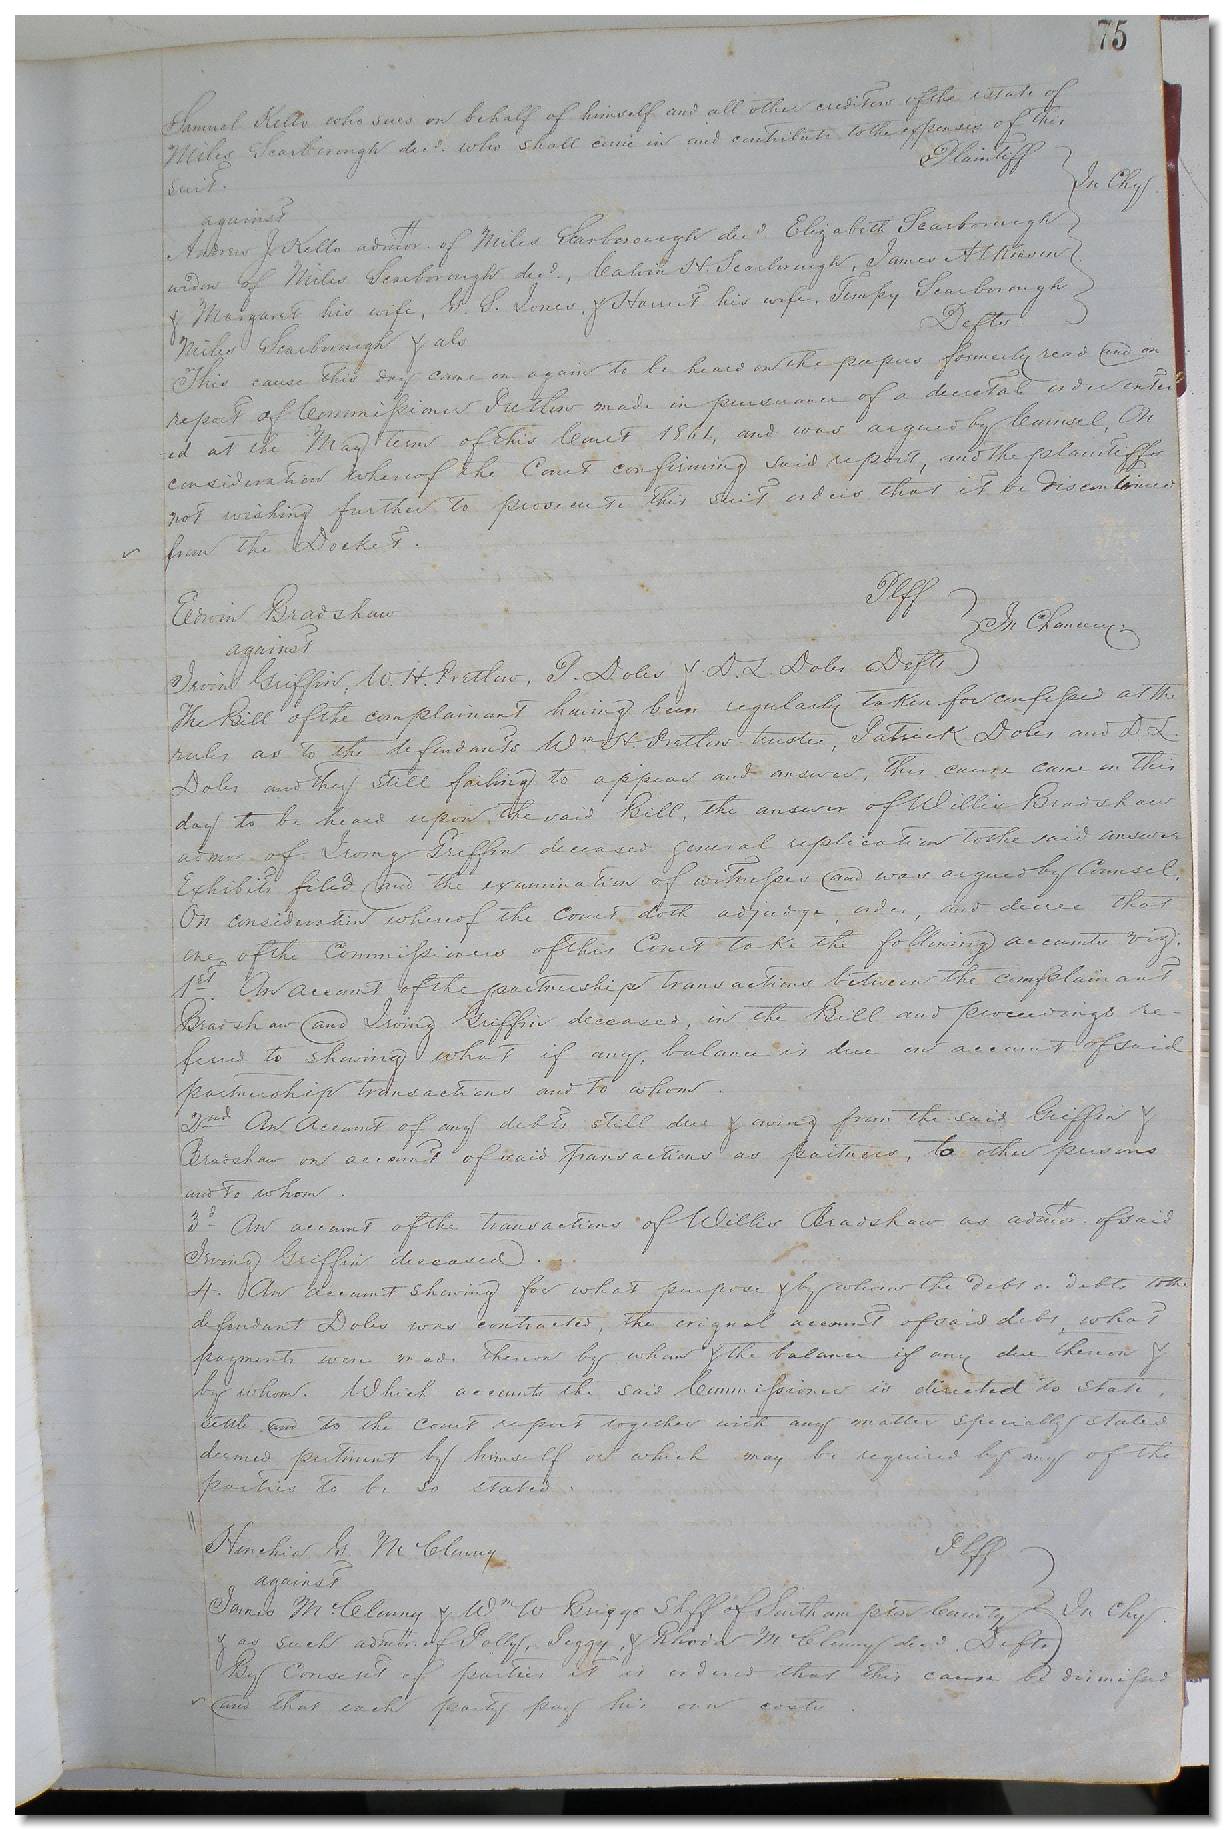 75
Samuel Kello who sues on behalf of himself and all other creditors of the estate of
Miles Scarborough decd. who shall come in and contribute to the expenses of this
suit. Plaintiff
against In Chy.
Andrew J. Kello admtor. of Miles Scarborough decd. Elizabeth Scarborough
widow of Miles Scarborough decd., Calvin H. Scarborough, James Atkinson
& Margaret his wife, S. Jones, & Harriet his wife, Tempy Scarborough
Miles Scarborough & als Defts
This cause this day came on again to be heard on the papers formerly read and on
report of Commissioner Pretlow made in pursuance of a decretal order enter
ed at the May term of this Court 1861, and was argued by Counsel, On
consideration whereof the Court confirming said report, and the plaintiff
not wishing further to prosecute this suit orders that it be discontinued
from the Docket.
Edwin Bradshaw Plff
against In Chancery
Irvin Griffin, W. H. Pretlow, P. Doles & D. L. Doles Defts
The Bill of the complainant having been regularly taken for confessed at the
rules as to the defendants Wm H. Pretlow trustee, Patrick Doles and D. L.
Doles and they still failing to appear and answer, this cause came on this
day to be heard upon the said Bill, the answer of Willis Bradshaw
admor of Irving Griffin deceased general replication to the said answer
Exhibits filed and the examination of witnesses and was argued by Counsel.
On consideration whereof the Court doth adjudge, order, and decree that
one of the Commissioners of this Court take the following accounts viz.
1st. An account of the partnership transactions between the complainant
Bradshaw and Irving Griffin deceased, in the Bill and proceedings re-
ferred to showing what if any, balance is due on account of said
partnership transactions and to whom.
2nd An Account of any debts still due & owing from the said Griffin &
Bradshaw on account of said transactions as partners, to other persons
and to whom.
3d An account of the transactions of Willis Bradshaw as admtor. of said
Irving Griffin deceased.
4. An account showing for what purpose & by whom the debt or debts to the
defendant Doles was contracted, the original account of said debt, what
payments were made thereon by whom & the balance if any due thereon &
by whom. Which accounts the said Commissioner is directed to state,
settle and to the Court report together with any matter specially stated
deemed pertinent by himself or which may be required by any of the
parties to be so stated.
McClenny Plff
against
James McClenny & Wm W Briggs Shff of Southampton County In Chy.
& as such admor. of Polly, Peggy, & Rhoda McClenny decd. Defts
By Consent of parties it is ordered that this cause be dismissed
and that each party pay his own costs.